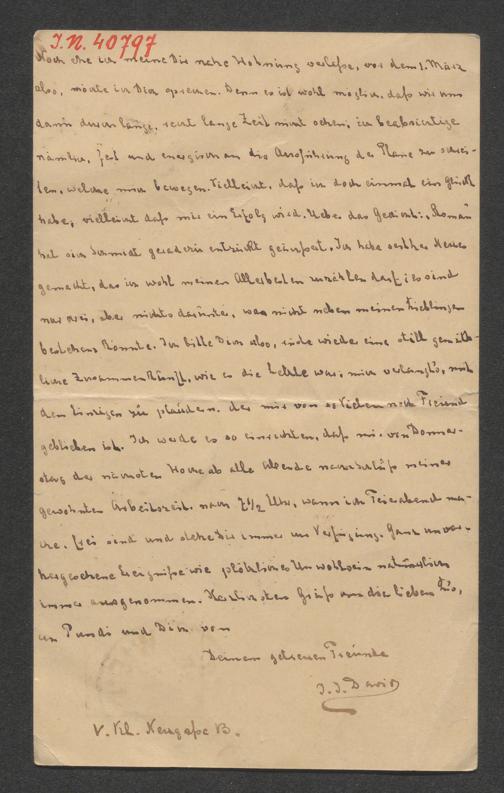 I.N. 40797
Noch ehe ich meine Dir nahe Wohnung verlaße, vor dem 1. März
also, möchte ich Dich sprechen. Denn es ist wohl möglich, daß wir uns
dann durch lange, recht lange Zeit nicht sehen; ich beabsichtige
nämlich, fest und energisch an die Ausführung der Pläne zu schrei-
ten, welche mich bewegen. Vielleicht, daß ich doch einmal ein Glück
habe; vielleicht daß mir ein Erfolg wird. Ueber das Gedicht: „Roman
hat sich geradezu entzückt geäußert. Ich habe seither Neues
gemacht, das ich wohl meinen Allerbesten zuzählen darf; es sind
nur drei, aber nichts darunter, was nicht neben meinen Lieblingen
bestehen könnte. Ich bitte Dich also, um eine still gemüth-
liche Zusammenkunft, wie es die letzte war; mich verlangt's, mit
dem Einzigen zu plaudern, der mir von so Vielen noch Freund
geblieben ist. Ich werde es so einrichten, daß mir von Donner-
stag der nächsten Woche ab alle Abende nach Schluß meiner
gewohnten Arbeitszeit, nach 7 1/2 Uhr, wann ich Feierabend ma-
che, frei sind und stehe Dir immer zur Verfügung. Ganz unvor-
hergesehene Ereigniße wie plötzliches Unwohlsein natürlich
immer ausgenommen. Herzlichsten Gruß an die lieben
an Pundi und Dich von
Deinem getreuen Freunde
J. J. David
V. Kl. Neugaße 13.